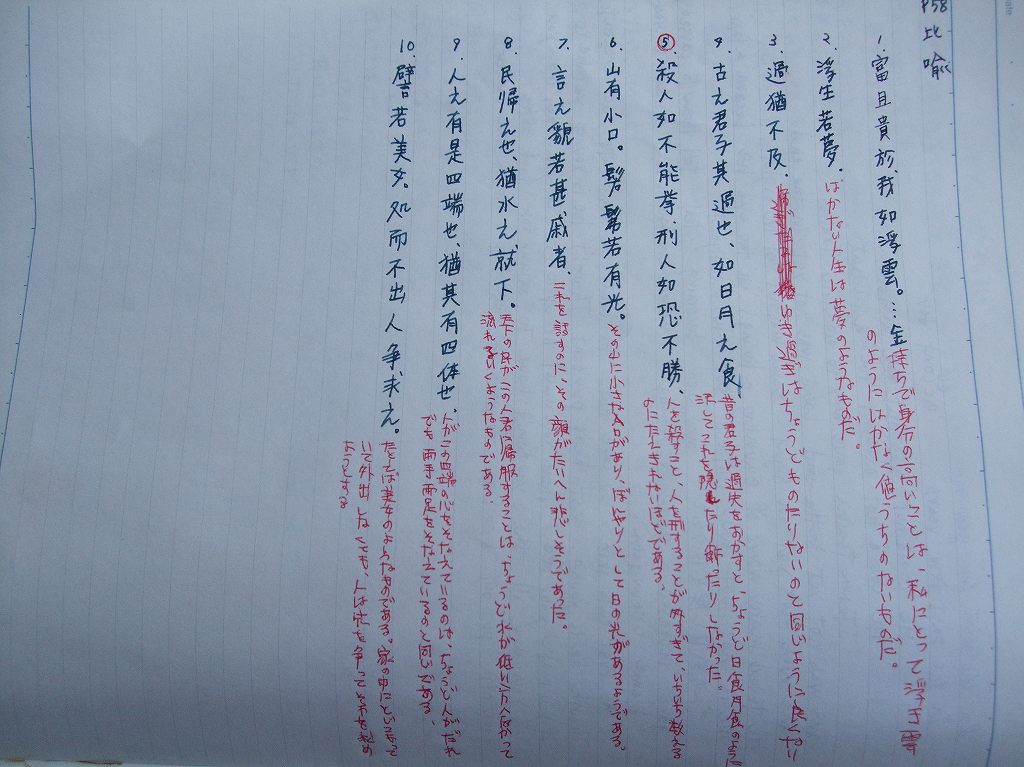 P58
比喩
1. 富且貴於我如浮雲。…金持ちで身分の高いことは、私にとって浮き雲
のようにはかなく値うちのないものだ。
2. 浮生若夢。はかない人生は夢のようなものだ。
3. 過猶不及。ゆき過ぎはちょうどものたりないのと同じように良くない
4. 古之君子其過也、如日月之食、昔の君子は過失をおかすと、ちょうど日食月食のように
決してこれを隠したり飾ったりしなかった。
⑤ 殺人如不能挙、刑人如恐不勝、人を殺すこと、人を刑することが多すぎて、いちいち数える
のにたえきれないほどである。
6. 山有小口。髣髴若有光。その山に小さな穴があり、ぼんやりとして日の光があるようである。
7. 言之貌若甚戚者、これを話すのに、その顔がたいへん悲しそうであった。
8. 民帰之也、猶水之就下。天下の民がこの人君に帰服することは、ちょうど水が低い方へ向かって
流れるいくようなものである。
9. 人之有是四端也、猶其有四体也、人がこの四端の心をそなえているのは、ちょうど人がだれ
でも両手両足をそなえているのと同じである。
10. 譬若美女。処而不出人争求之。たとえば美女のようなものである。家の中にじっとして
いて外出しなくても、人は先を争ってそれを求め
ようとする